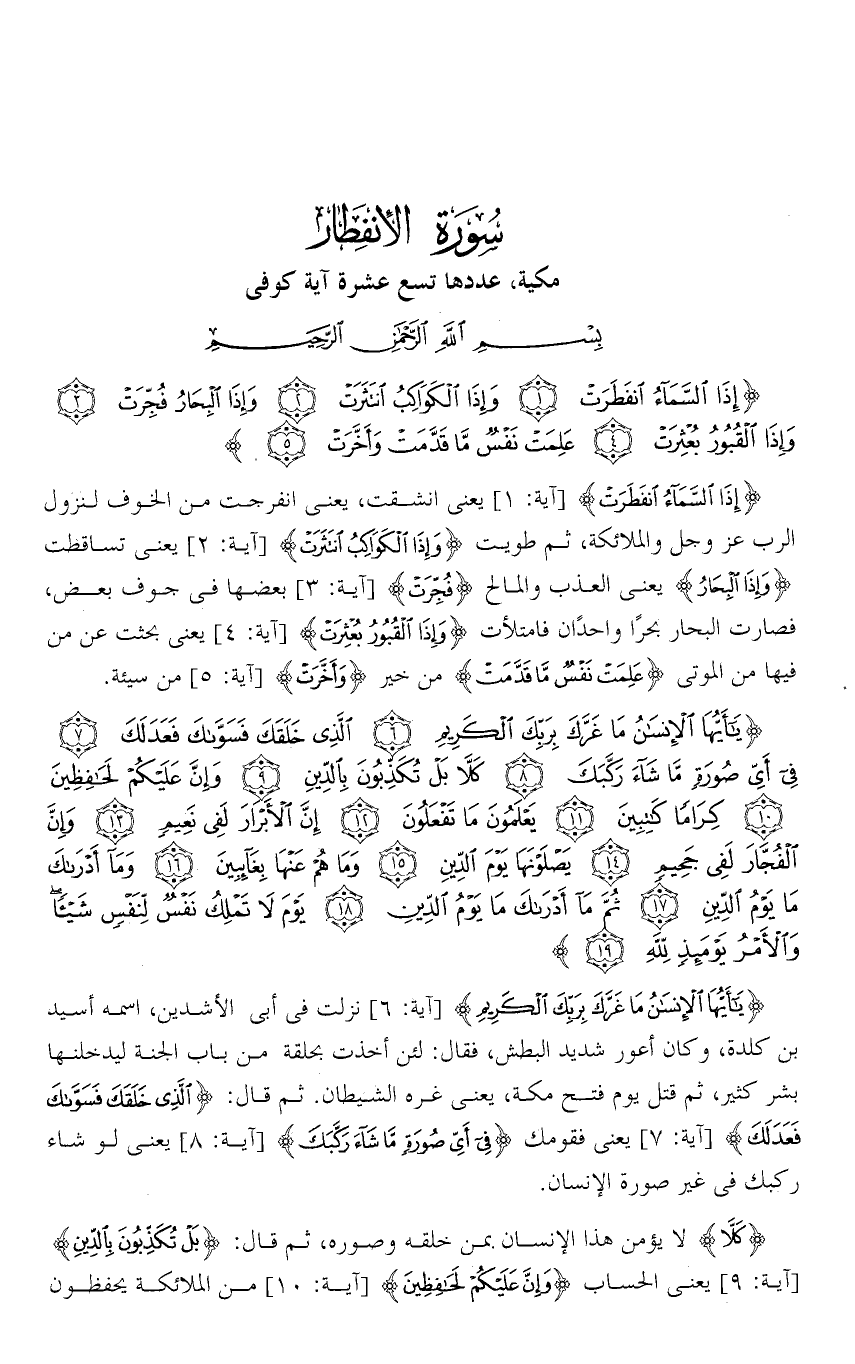 سُورَةِ الإنفِطَار
مكية، عددها تسع عشرة آية كوفى
بِسْمِ ٱللَّهِ ٱلرَّحْمَٰنِ ٱلرَّحِيمِ
﴿إِذَا ٱلسَّمَآءُ ٱنفَطَرَتْ ۝١ وَإِذَا ٱلْكَوَاكِبُ ٱنتَثَرَتْ ۝٢ وَإِذَا ٱلْبِحَارُ فُجِّرَتْ ۝٣
وَإِذَا ٱلْقُبُورُ بُعْثِرَتْ ۝٤ عَلِمَتْ نَفْسٌ مَّا قَدَّمَتْ وَأَخَّرَتْ ۝٥ ﴾
﴿إِذَا ٱلسَّمَآءُ ٱنفَطَرَتْ﴾ [آية: ١] يعنى انشقت، يعنى انفرجت من الخوف لنزول
الرب عز وجل والملائكة، ثم طويت ﴿وَإِذَا ٱلْكَوَاكِبُ ٱنتَثَرَتْ﴾ [آية: ٢] يعنى تساقطت
﴿وَإِذَا ٱلْبِحَارُ﴾ يعنى العذب والمالح ﴿فُجِّرَتْ﴾ [آية: ٣] بعضها فى جوف بعض،
فصارت البحار بحرًا واحدًان فامتلأت ﴿وَإِذَا ٱلْقُبُورُ بُعْثِرَتْ﴾ [آية: ٤] يعنى بحثت عن من
فيها من الموتى ﴿عَلِمَتْ نَفْسٌ مَّا قَدَّمَتْ﴾ من خير ﴿وَأَخَّرَتْ﴾ [آية: ٥] من سيئة.
﴿يَٰٓأَيُّهَا ٱلْإِنسَٰنُ مَا غَرَّكَ بِرَبِّكَ ٱلْكَرِيمِ ۝٦ ٱلَّذِى خَلَقَكَ فَسَوَّىٰكَ فَعَدَلَكَ ۝٧
فِىٓ أَىِّ صُورَةٍ مَّا شَآءَ رَكَّبَكَ ۝٨ كَلَّا بَلْ تُكَذِّبُونَ بِٱلدِّينِ ۝٩ وَإِنَّ عَلَيْكُمْ لَحَٰفِظِينَ
۝١٠ كِرَامًا كَٰتِبِينَ ۝١١ يَعْلَمُونَ مَا تَفْعَلُونَ ۝١٢ إِنَّ ٱلْأَبْرَارَ لَفِى نَعِيمٍ ۝١٣ وَإِنَّ
ٱلْفُجَّارَ لَفِى جَحِيمٍ ۝١٤ يَصْلَوْنَهَا يَوْمَ ٱلدِّينِ ۝١٥ وَمَا هُمْ عَنْهَا بِغَآئِبِينَ ۝١٦ وَمَآ أَدْرَىٰكَ
مَا يَوْمُ ٱلدِّينِ ۝١٧ ثُمَّ مَآ أَدْرَىٰكَ مَا يَوْمُ ٱلدِّينِ ۝١٨ يَوْمَ لَا تَمْلِكُ نَفْسٌ لِّنَفْسٍ شَيْـًٔا ۖ
وَٱلْأَمْرُ يَوْمَئِذٍ لِّلَّهِ ۝١٩ ﴾
﴿يَٰٓأَيُّهَا ٱلْإِنسَٰنُ مَا غَرَّكَ بِرَبِّكَ ٱلْكَرِيمِ﴾ [آية: ٦] نزلت فى أبى الأشدين، اسمه أسيد
بن كلدة، وكان أعور شديد البطش، فقال: لئن أخذت بحلقة من باب الجنة ليدخلنها
بشر كثير، ثم قتل يوم فتح مكة، يعنى غره الشيطان. ثم قال: ﴿ٱلَّذِى خَلَقَكَ فَسَوَّىٰكَ
فَعَدَلَكَ﴾ [آية: ٧] يعنى فقومك ﴿فِىٓ أَىِّ صُورَةٍ مَّا شَآءَ رَكَّبَكَ﴾ [آية: ٨] يعنى لو شاء
ركبك فى غير صورة الإنسان.
﴿كَلَّا﴾ لا يؤمن هذا الإنسان بمن خلقه وصوره، ثم قال: ﴿بَلْ تُكَذِّبُونَ بِٱلدِّينِ﴾
[آية: ٩] يعنى الحساب ﴿وَإِنَّ عَلَيْكُمْ لَحَٰفِظِينَ﴾ [آية: ١٠] من الملائكة يحفظون